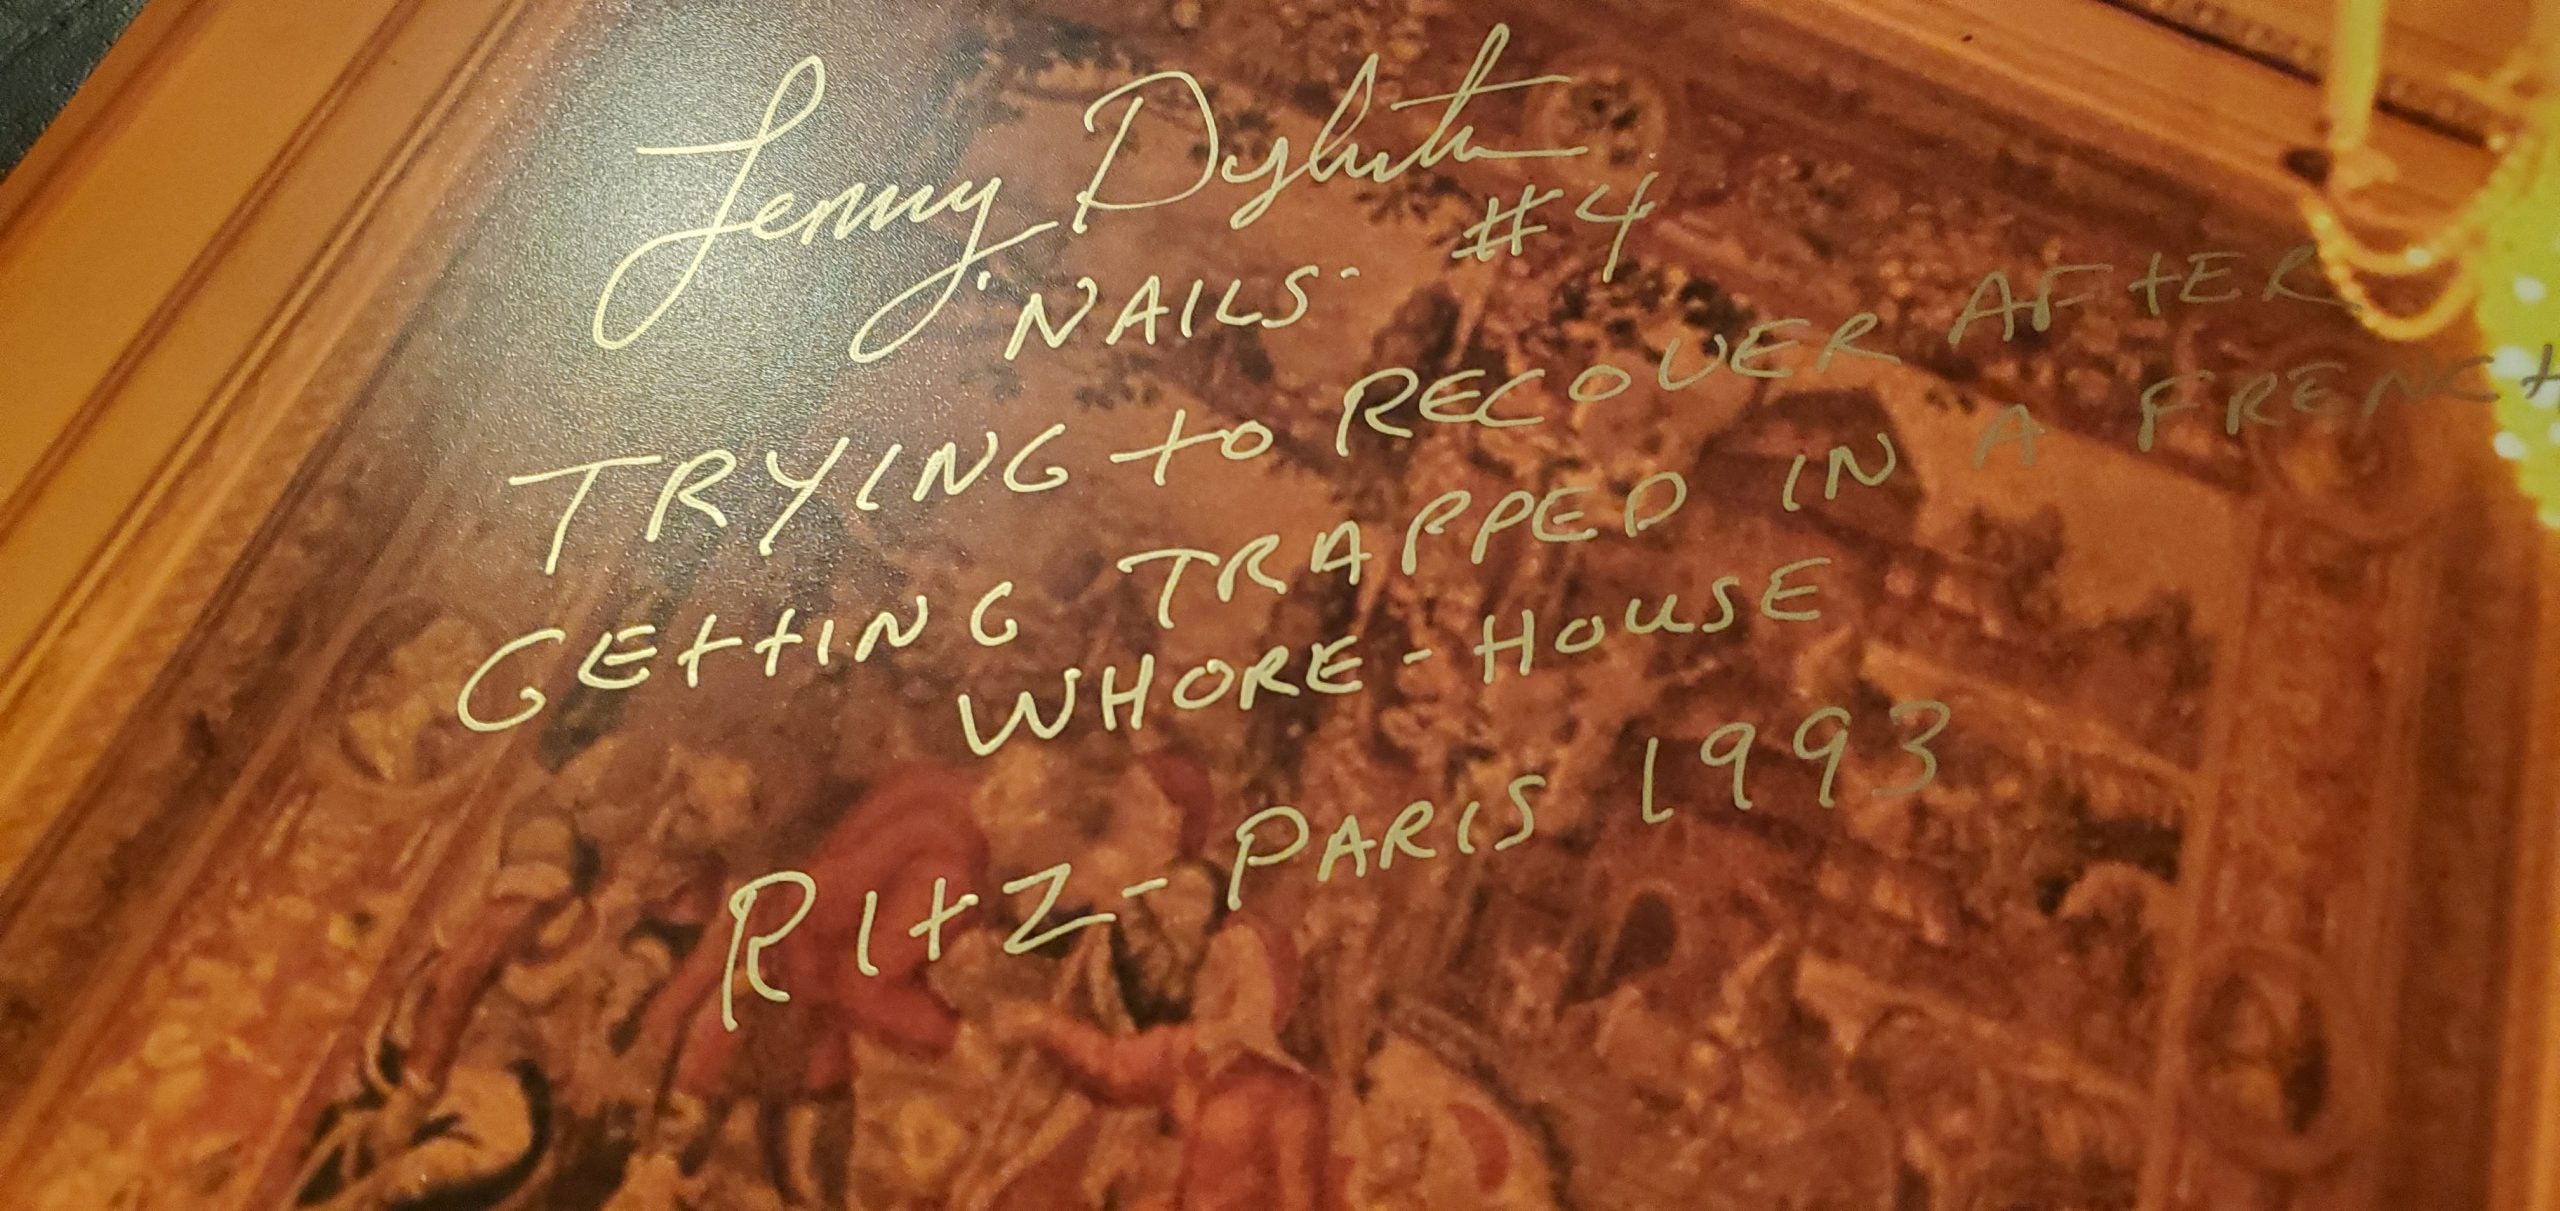 Lenny Dykstra
"NAILS" #4
TRYING to RECOVER AFtER
GEttING TRAPPED IN A FRENCH
WHORE-HOUSE
RItZ-PARIS 1993